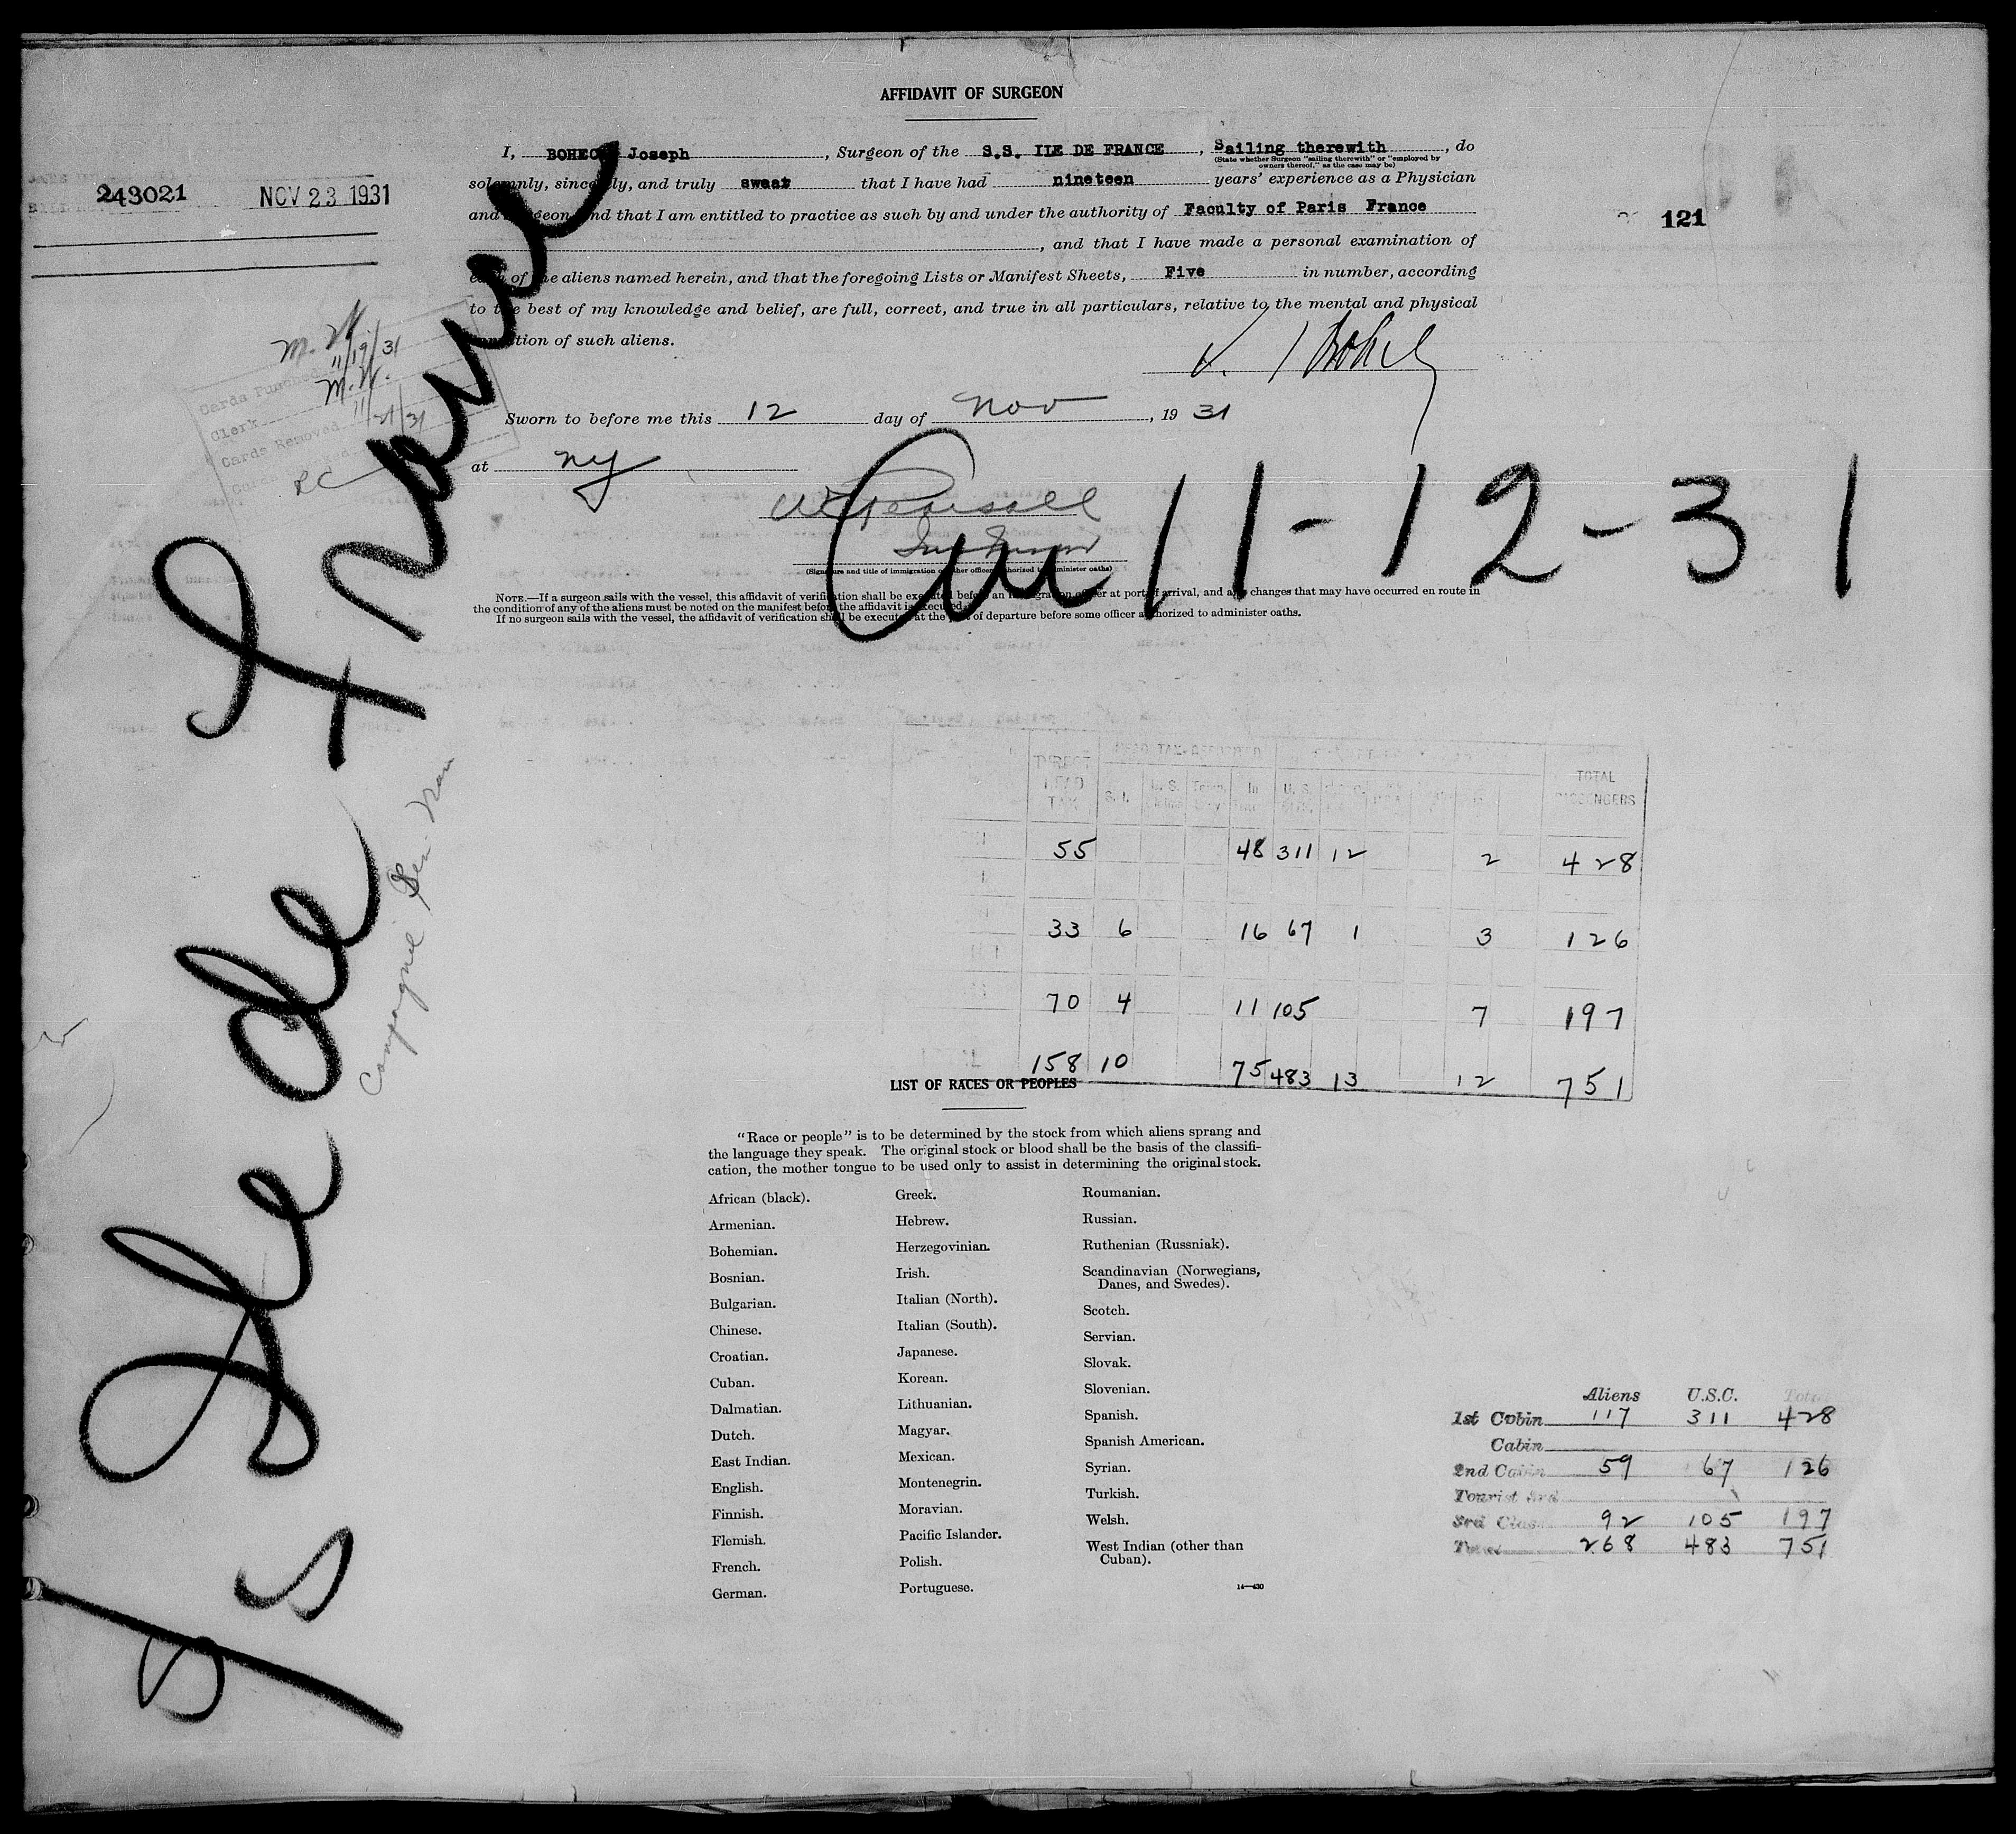 AFFIDAVIT OF SURGEON
I, Joseph, Surgeon of the S.S. ILE DE FRANCE, Sailing therewith, do
(State whether Surgeon "sailing therewith" or "employed by
owners thereof," as the case may be)
solemnly, sincerely, and truly swear that I have had nineteen years' experience as a Physician
and Surgeon and that I am entitled to practice as such by and under the authority of Faculty of Paris France
, and that I have made a personal examination of
each of the aliens named herein, and that the foregoing Lists or Manifest Sheets, Five in number, according
to the best of my knowledge and belief, are full, correct, and true in all particulars, relative to the mental and physical
condition of such aliens.
243021 NOV 23 1931
121
11/19/31
Cards Punched
M.W.
Clerk
11/21/31
Cards Removed
RC
Sworn to before me this 12 day of Nov, 19 31
at NY
(Signature and title of immigration or other officer authorized to administer oaths)
11-12-31
NOTE.—If a surgeon sails with the vessel, this affidavit of verification shall be executed before an immigration officer at port of arrival, and any changes that may have occurred en route in
the condition of any of the aliens must be noted on the manifest before the affidavit is executed.
If no surgeon sails with the vessel, the affidavit of verification shall be executed at the port of departure before some officer authorized to administer oaths.
S/S Ile de France
Compagnie Gen
DIRECT HEAD TAX S.I. U.S. TOTAL PASSENGERS
55 48 311 12 2 428
33 6 16 67 1 3 126
70 4 11 105 7 197
158 10 75 483 13 12 751
LIST OF RACES OR PEOPLES
"Race or people" is to be determined by the stock from which aliens sprang and
the language they speak. The original stock or blood shall be the basis of the classifi-
cation, the mother tongue to be used only to assist in determining the original stock.
African (black).
Armenian.
Bohemian.
Bosnian.
Bulgarian.
Chinese.
Croatian.
Cuban.
Dalmatian.
Dutch.
East Indian.
English.
Finnish.
Flemish.
French.
German.
Greek.
Hebrew.
Herzegovinian.
Irish.
Italian (North).
Italian (South).
Japanese.
Korean.
Lithuanian.
Magyar.
Mexican.
Montenegrin.
Moravian.
Pacific Islander.
Polish.
Portuguese.
Roumanian.
Russian.
Ruthenian (Russniak).
Scandinavian (Norwegians,
Danes, and Swedes).
Scotch.
Servian.
Slovak.
Slovenian.
Spanish.
Spanish American.
Syrian.
Turkish.
Welsh.
West Indian (other than
Cuban).
14—430
Aliens U.S.C. Total
1st Cabin 117 311 428
Cabin
2nd Cabin 59 67 126
Tourist 3rd
3rd Class 92 105 197
Total 268 483 751